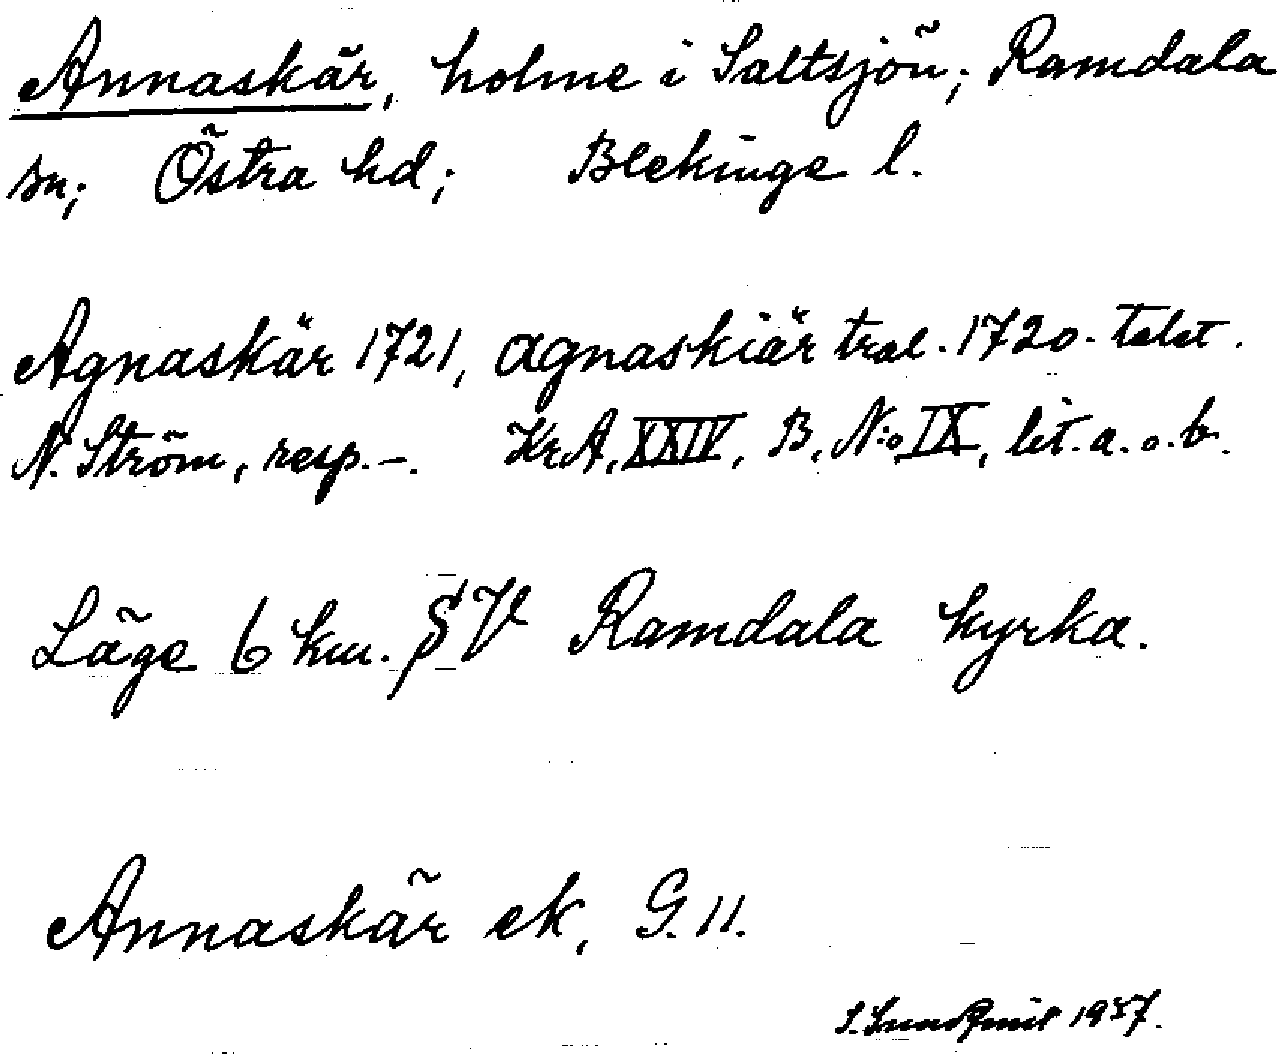 Annaskär, holme i Saltsjön; Ramdala
sn; Östra hd; Blekinge l.
Agnaskär 1721, Agnaskiär tral. 1720.
N. Ström, resp. –. KrA, XXIV, B, N:o IX, lit. a. o. b.
Läge 6 km. SV Ramdala kyrka.
Annaskär ek, G. 11.
1937.